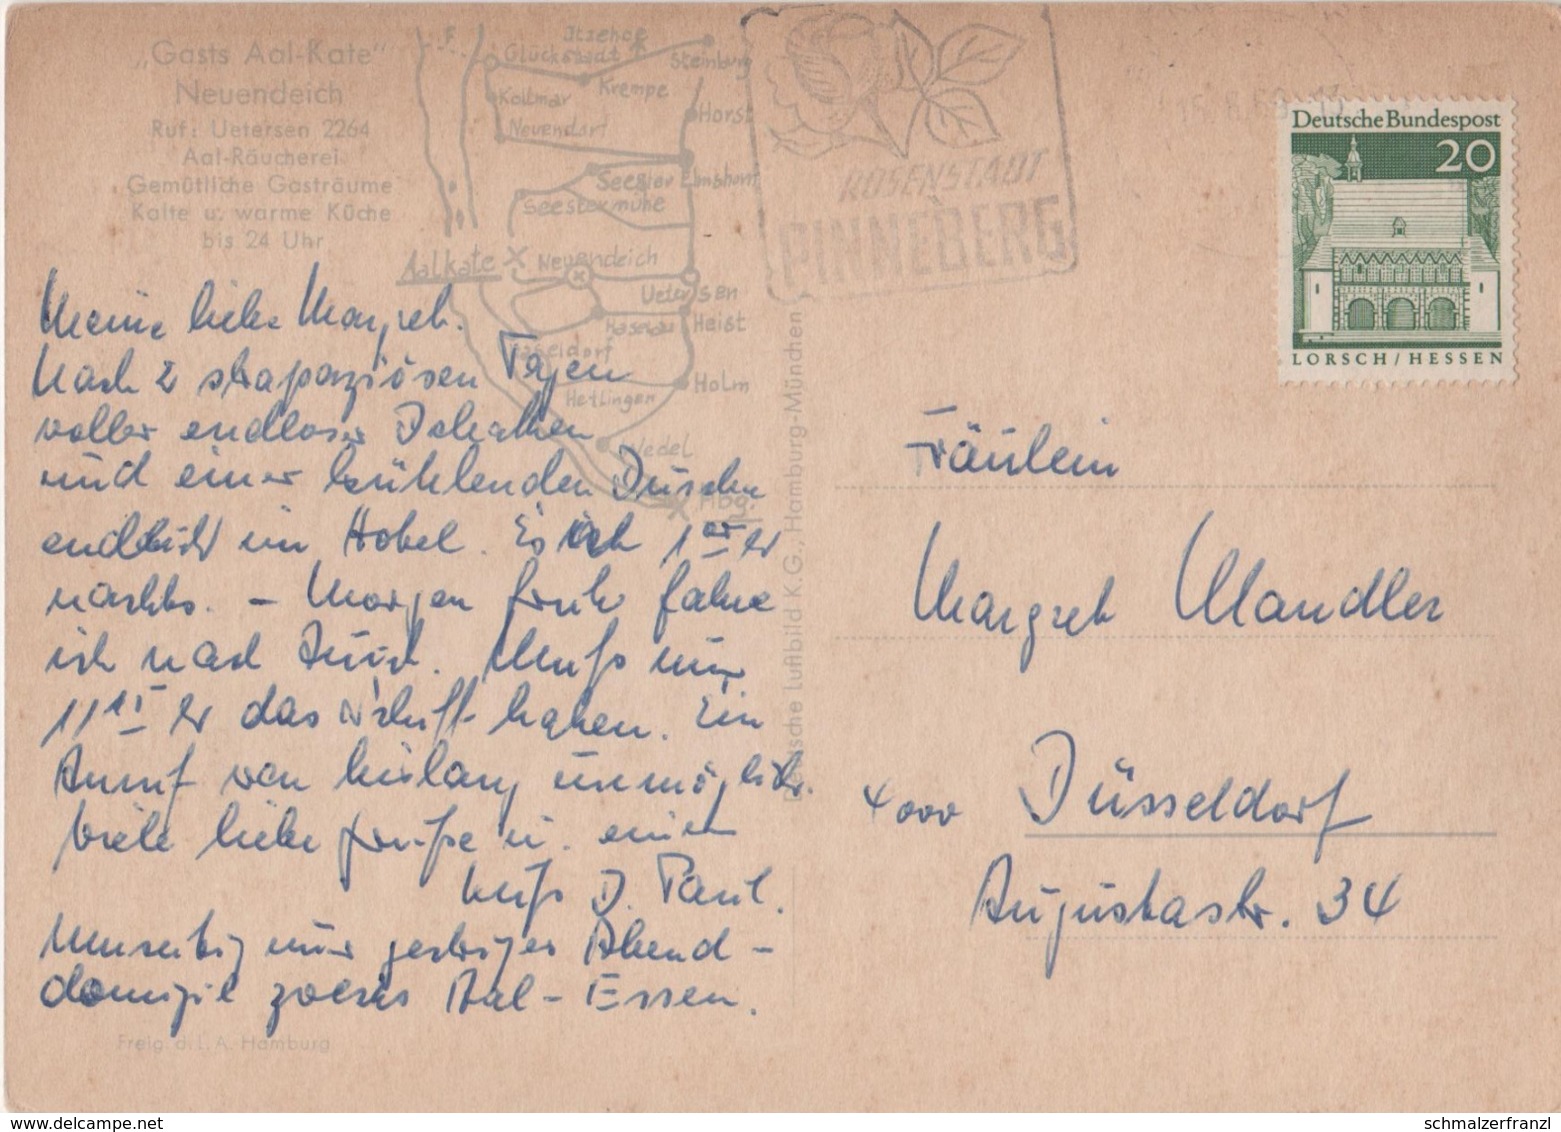 „Gasts Aal-Kate"
Neuendeich
Ruf: Uetersen 2264
Aal-Räucherei
Gemütliche Gasträume
Kalte u. warme Küche
bis 24 Uhr
Itzehoe
Glückstadt
Steinburg
Krempe
Kollmar
Horst
Neuendorf
Seester
Elmshorn
Seestermühe
Aalkate
Neuendeich
Uetersen
Haselau
Heist
Haseldorf
Holm
Hetlingen
Wedel
Hbg.
ROSENSTADT
PINNEBERG
Deutsche Bundespost
20
LORSCH/HESSEN
Meine liebe Margret.
Nach 2 strapaziösen Tagen
voller endloser Debatten
und einer kühlenden Dusche
endlich im Hotel. Es ist 1 h
nachts. – Morgen früh fahre
ich nach Juist. Muß um
11 h das Schiff haben. Ein
Anruf war bislang unmöglich.
Viele liebe Grüße u. einen
Kuß D. Paul.
Umseitig mein gestriger Abend-
domizil zwecks Aal-Essen.
Fräulein
Margret Mandler
4000 Düsseldorf
Augustastr. 34
Deutsche Luftbild K.G., Hamburg-München
Freig. d. L. A. Hamburg
www.delcampe.net
schmalzerfranzl